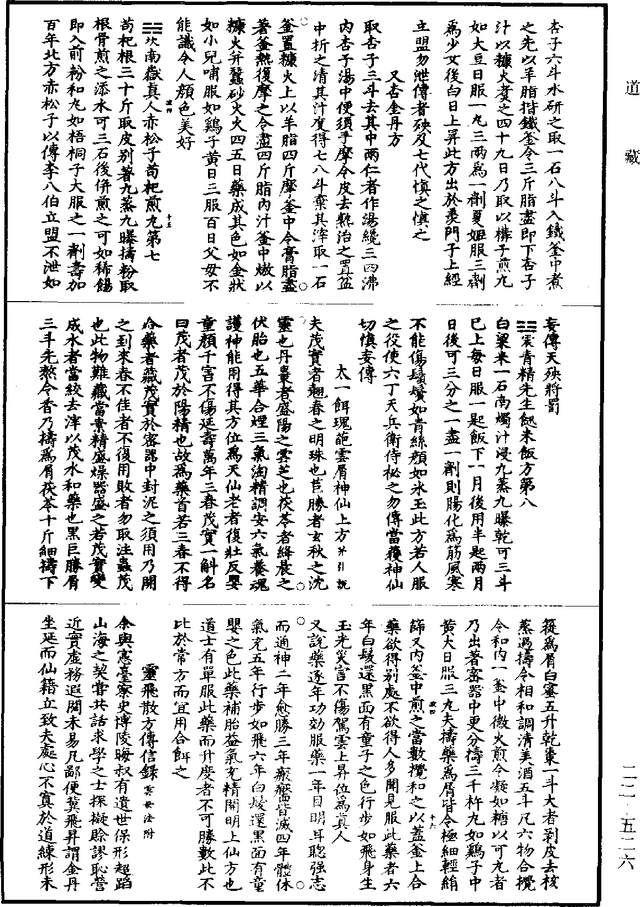 道藏
杏子六斗水研之取一石八斗入鐵釜中煮
之先以羊脂揩鐵釜令三斤脂盡即下杏子
汁以糠火煑之四十九日乃取以構子煎丸
如大豆日服一丸三兩為一劑夏姬服三劑
為少女後白日上昇此方出於羨門子上經
立盟勿泄傳者殃及七代慎之慎之
又杏金丹方
取杏子三斗去其中兩仁者作湯纔三四沸
內杏子湯中便須手摩令皮去熟治之置盆
中折之清其汁度得七八斗棄其滓取一石
釜置糠火上以羊脂四斤摩釜中令膏脂盡
著釜熱復摩之令盡四斤脂內汁釜中熾以
糠火并蠶砂火火四五日藥成其色如金狀
如小兒哺服如鷄子黃日三服百日父母不
能識令人顏色美好
坎南嶽真人赤松子苟杞煎丸第七
苟杞根三十斤取皮別著九蒸九曝擣粉取
根骨煎之添水可三石後併煎之可如稀餳
即入前粉和丸如梧桐子大服之一劑壽加
百年北方赤松子以傳李八伯立盟不泄如
妄傳天殃將罰
雲青精先生𩛩米飯方第八
白粟米一石南燭汁浸九蒸九曝乾可三斗
已上每日服一匙飯下一月後用半匙兩月
日後可三分之一盡一劑則腸化為筋風寒
不能傷鬚鬢如青絲顏如冰玉此方若人服
之役使六丁天兵衛侍祕之勿傳當獲神仙
切慎妄傳
太一餌瑰葩雲屑神仙上方并引說
夫茂實者翹春之明珠也苣勝者玄秋之沈
靈也丹棗者盛陽之雲芝也茯苓者絳晨之
伏胎也五華合煙三氣淘精調安六氣養魂
護神能用得其方位為天仙老者復壯反嬰
童顏千害不傷延壽萬年三春茂實一斛名
曰茂者茂於陽精也故為藥首若三春不得
合藥者藏茂實於密器中封泥之須用乃開
之到來春不佳者不復用敗者勿取注蟲茂
也此物難藏當素精盛燥器盛之若茂實變
成水者當絞去滓以茂水和藥也黑巨勝屑
三斗先熬令香乃擣為屑茯苓十斤細擣下
篵為屑白蜜五升乾棗一斗大者剝皮去核
蒸過擣令相和調清美酒五斗凡六物合攪
令和內一釜中微火煎令凝如糖以可丸者
乃出著密器中更分擣三千杵丸如鷄子中
黃大日服三丸夫擣藥為屑皆令極細輕絹
篩又內釜中煎之當數攪和之以蓋釜上合
藥欲得別處不欲得人多聞見服此藥者六
年白髮還黑面有童子之色行步如飛身生
玉光災害不傷駕雲上昇位為真人
又說藥逐年功効服藥一年目明耳聰強志
而通神二年愈勝三年瘢瘡皆滅四年體休
氣充五年行步如飛六年白髮還黑面有童
嬰之色此藥補胎益氣充精開明上仙方也
道士有單服此藥而升度者不可勝數此不
比於常方而宜用合餌之
靈飛散方傳信錄
余與憲臺察史博陵𣇈叔有遺世保形超蹈
山海之契嘗共話求學之士探擬賒謬恥營
近實虛務遐闊本易凡鄙便冀飛昇謂金丹
坐延而仙籍立致夫處心不冥於道練形未
二一·五二六